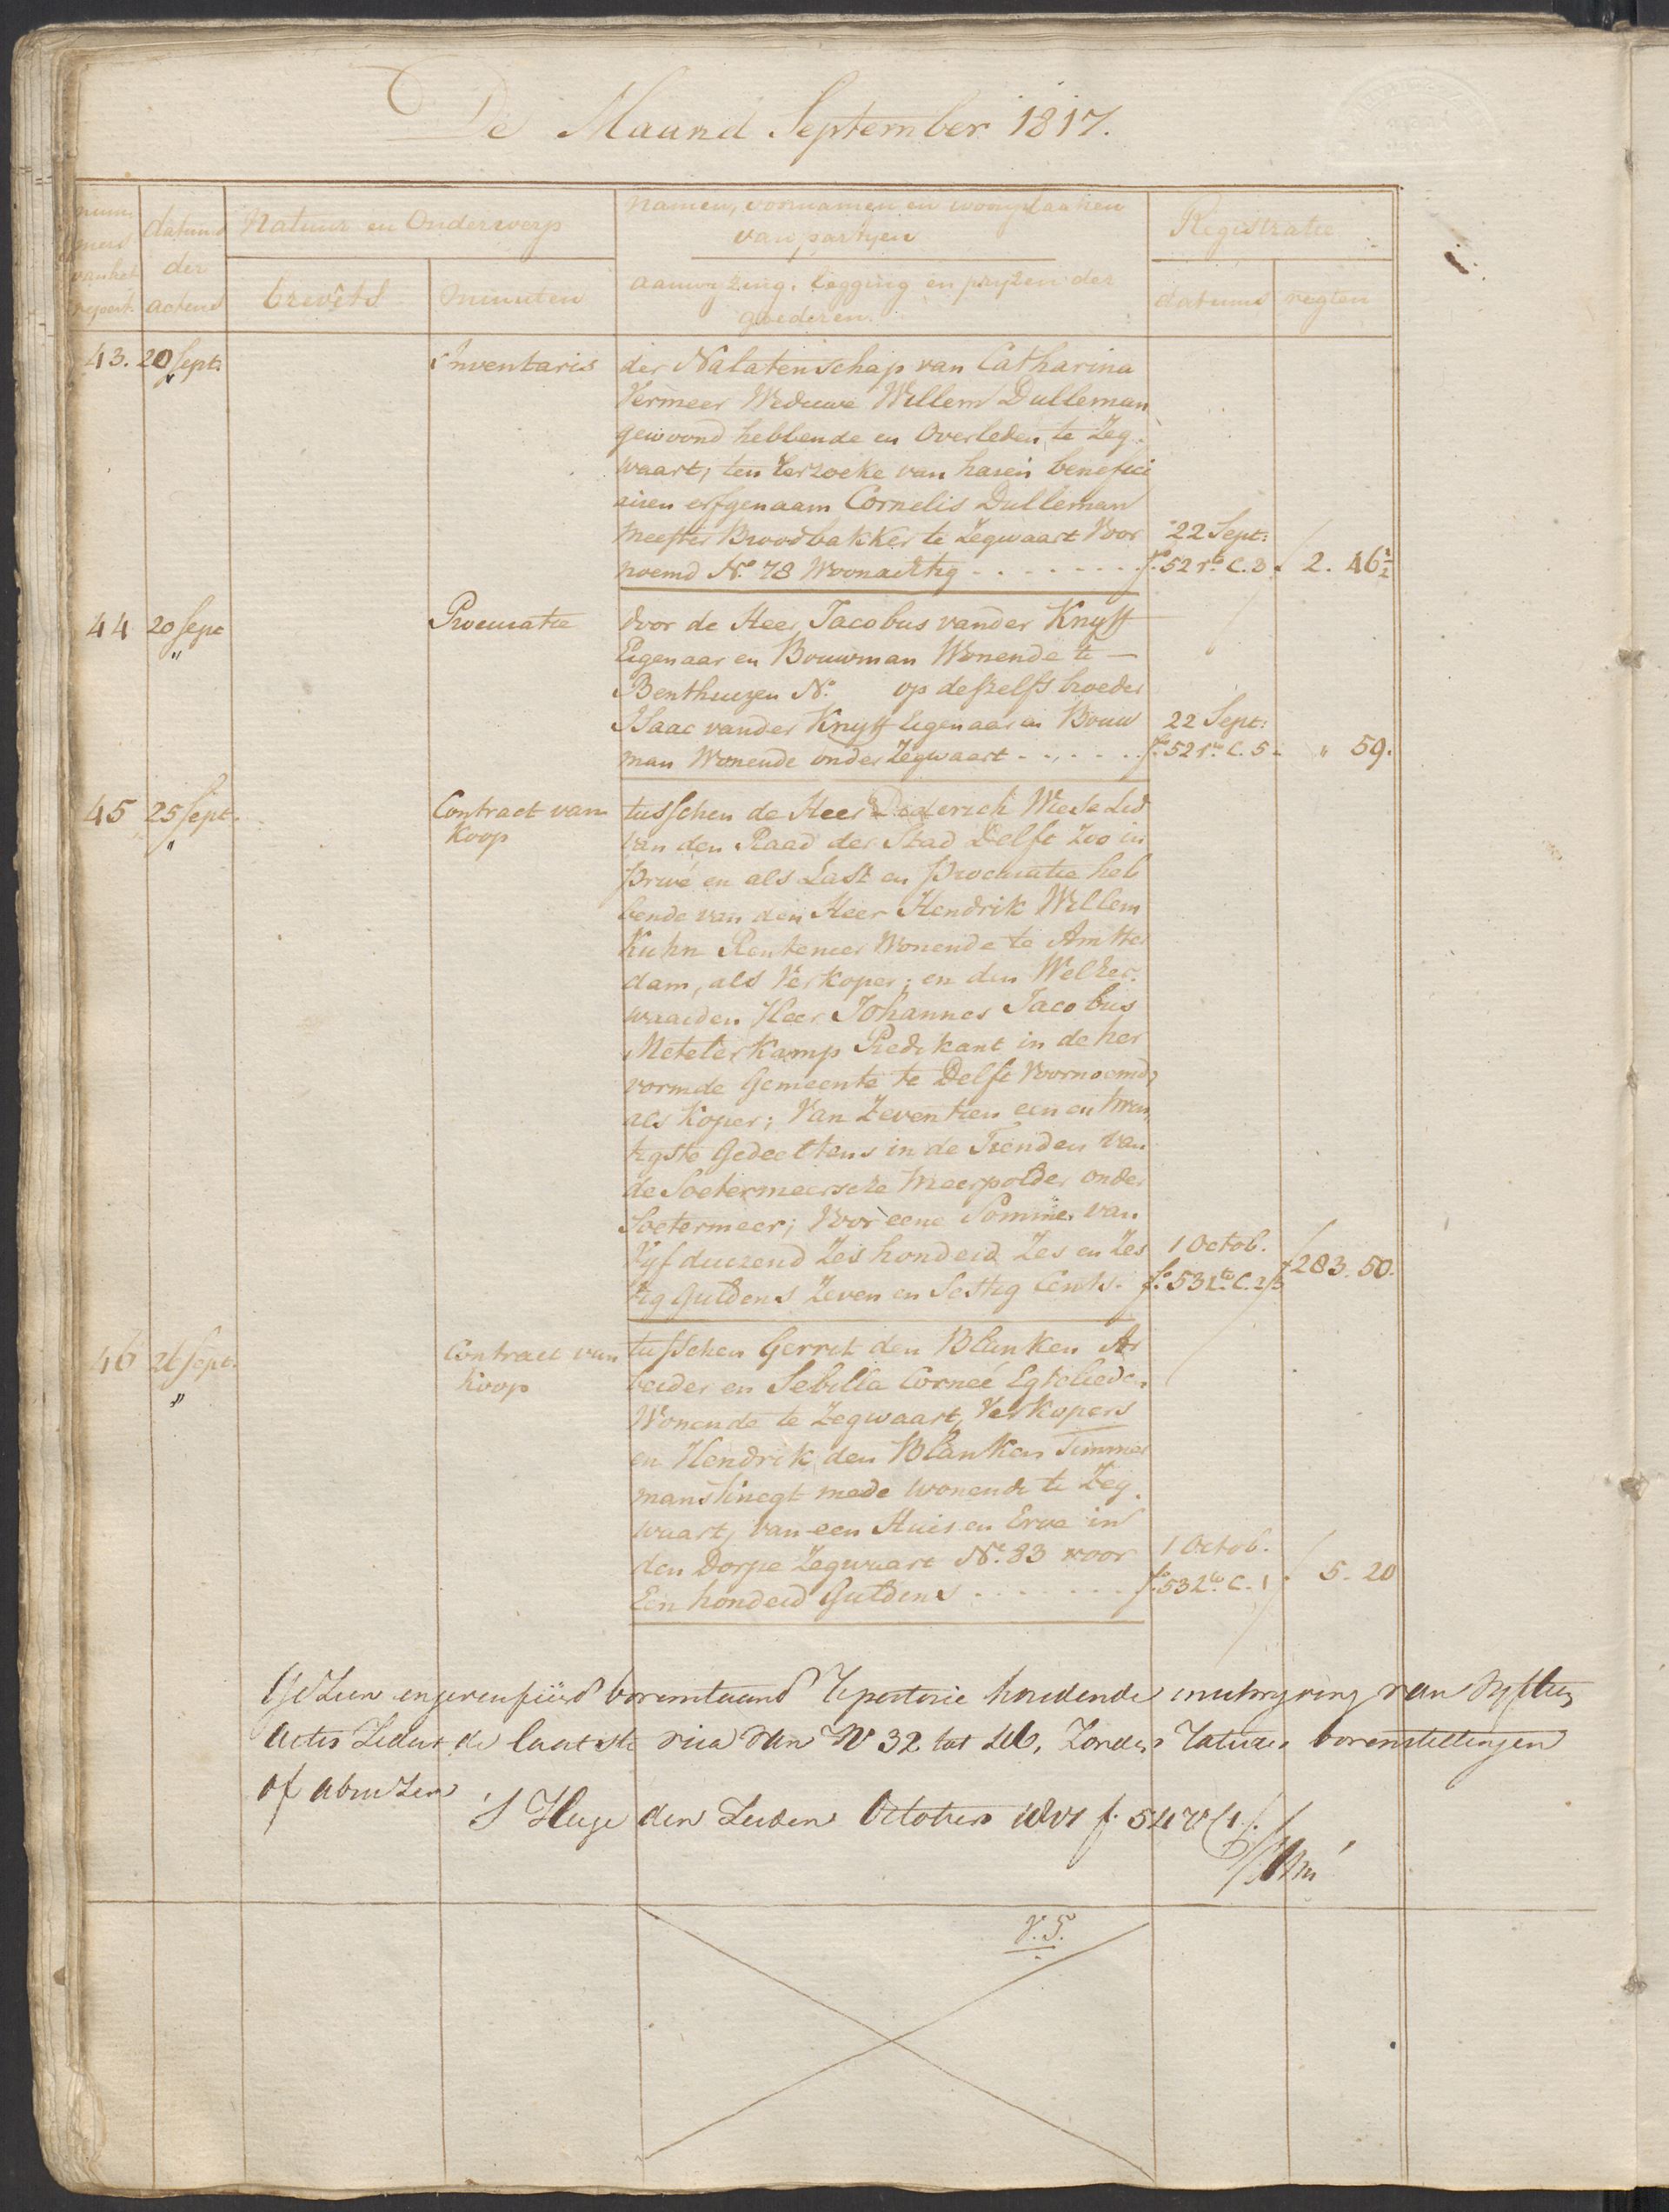 De Maand September 1817.
num
mers
van het
repert.
datums
der
actens
Natuur en Onderwerp
brevets
minuten
namen, voornamen en woonplaatsen
van partyen
aanwyzing, legging en pryzen der
goederen.
Registratie
datums
regten
43. 20 Sept. Inventaris der Nalatenschap van Catharina
Vermeer Weduwe Willem Dulleman
gewoond hebbende en Overleden te Zeg
waart, ten Verzoeke van haren benefici
airen erfgenaam Cornelis Dulleman
Meester Broodbakker te Zegwaart Voor 22 Sept:
noemd No. 78 Woonachtig - - - - - - - fo. 52 ro. C. 3. 2. 46½
44 20 Sept " Procuratie door de Heer Jacobus vander Knyff
Eigenaar en Bouwman Wonende te —
Benthuizen No. op deszelfs broeder
Isaac vander Knyff Eigenaar en Bouw 22 Sept:
man Wonende onder Zegwaart - - - - - fo. 52 ro. C. 5 - " 59.
45 25 Sept. " Contract van tusschen de Heer Diderich Wiese Lid
Koop van den Raad der Stad Delft Zoo in
privé en als Last en Procuratie heb
bende van den Heer Hendrik Willem
Kuhn Rentenier Wonende te Amster
dam, als Verkoper; en den Weleer
waarden Heer Johannes Jacobus
Metelerkamp Predikant in de her
vormde Gemeente te Delft Voornoemd,
als Koper; Van Zeventien een en twin
tigste Gedeeltens in de Tienden van
de Soetermeersche Meerpolder onder
Soetermeer; Voor eene Somme van
Vyf duizend Zes honderd Zes en Zes 1 Octob.
tig Guldens Zeven en Sestig Cents. fo. 53 C. 2/3 283. 50.
46 26 Sept. " Contract van tusschen Gerrit den Blanken Ar
Koop beider en Sebilla Corneé Egtelieden
Wonende te Zegwaart, Verkopers
en Hendrik den Blanken Timmer
mansknegt mede wonende te Zeg
waart, van een Huis en Erve in
den Dorpe Zegwaart No. 83 voor 1 Octob.
Een honderd Guldens - - - - - - - fo. 53 C. 1 5. 20
Gezien en geverifiëerd bovenstaand Repertorie houdende inschryving van vyftien
actes Zedert de laatste visa van No 32 tot 46, Zonder
of abuizen
'S Hage den Zeven October
V. T.